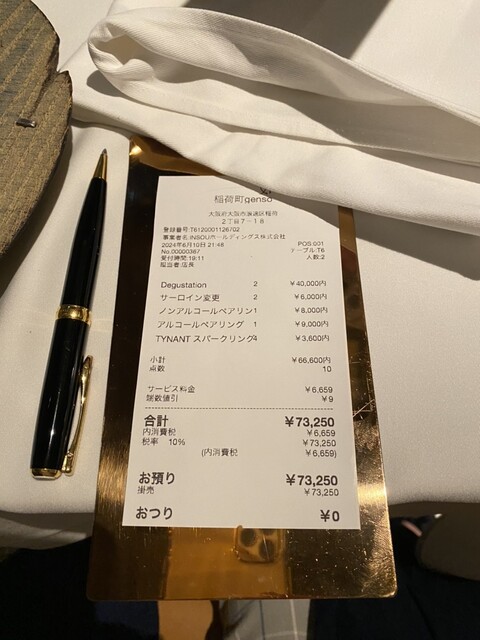 稲荷町genso
大阪府大阪市浪速区稲荷
2丁目7-18
登録番号:T6120001126702
事業者名:INSOUホールディングス株式会社
2024年6月10日 21:48 POS:001
No:00000367 テーブル:T6
受付時間:19:11 人数:2
担当者:店長
Degustation 2 ¥40,000円
サーロイン変更 2 ¥6,000円
ノンアルコールペアリン1 ¥8,000円
アルコールペアリング 1 ¥9,000円
TYNANT スパークリング4 ¥3,600円
小計 ¥66,600円
点数 10
サービス料金 ¥6,659
端数値引 ¥9
合計 ¥73,250
内消費税 ¥6,659
税率 10% ¥73,250
(内消費税 ¥6,659)
お預り ¥73,250
掛売 ¥73,250
おつり ¥0